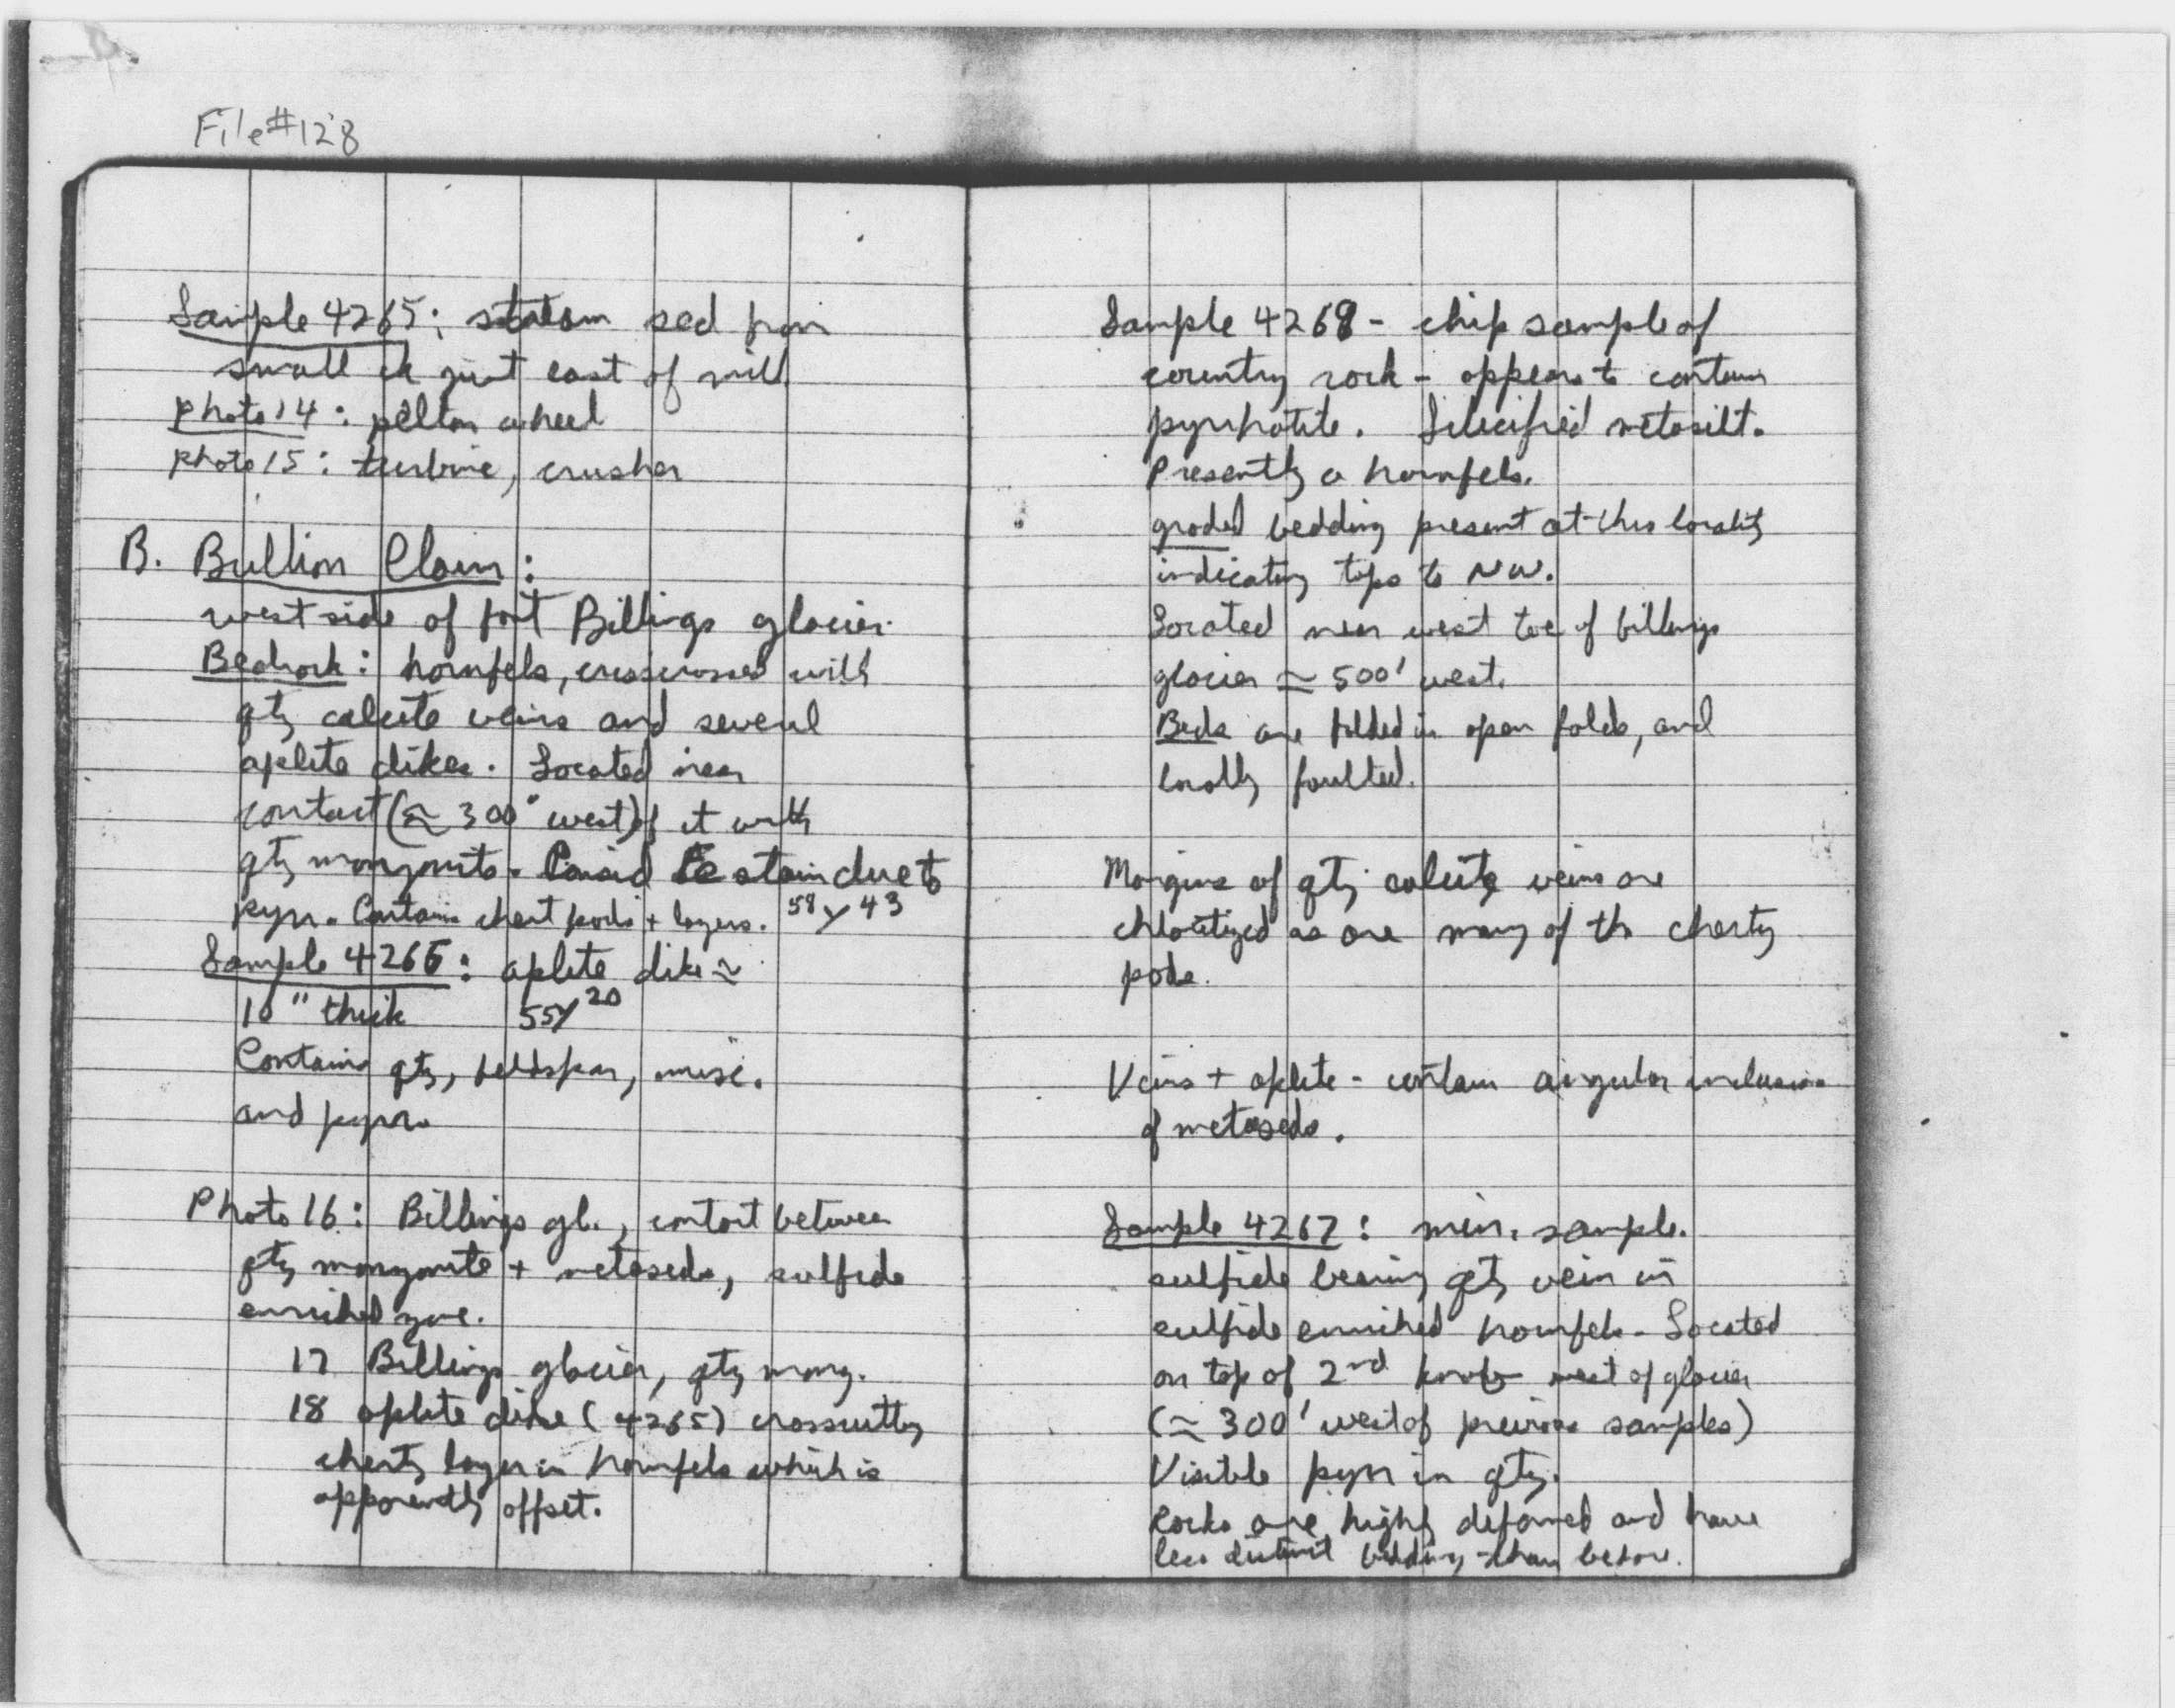 File #128
Sample 4265: stream sed from
small ck just east of mill
Photo 14: pelton wheel
Photo 15: turbine, crusher
B. Bullion Claim:
west side of Billings glacier.
Bedrock: hornfels, crisscrossed with
qtz calcite veins and several
aplite dikes. Located near
contact (≈ 300' west) of it with
qtz monzonite. Fe stain due to
pyrr. Contains chert pods + layers. 58 43
Sample 4266: aplite dike ≈
10" thick 55 20
Contains qtz, feldspar, musc.
and pyrr.
Photo 16: Billings gl., contact between
qtz monzonite + metaseds, sulfide
enriched zone.
17 Billings glacier, qtz monz.
18 aplite dike (4265) crosscutting
cherty layer in hornfels which is
apparently offset.
Sample 4268 - chip sample of
country rock - appears to contain
pyrrhotite. Silicified metasilt.
Presently a hornfels.
graded bedding present at this locality
indicating tops to NW.
Located near west toe of billings
glacier ≈ 500' west.
Beds are folded in open folds, and
locally faulted.
Margins of qtz calcite veins are
chloritized as are many of the cherty
pods.
Veins + aplite - contain angular inclusions
of metaseds.
Sample 4267: min. sample.
sulfide bearing qtz vein in
sulfide enriched hornfels - Located
on top of 2nd knob west of glacier
(≈ 300' west of previous samples)
Visible pyrr in qtz.
Rocks are highly deformed and have
less distinct bedding than before.